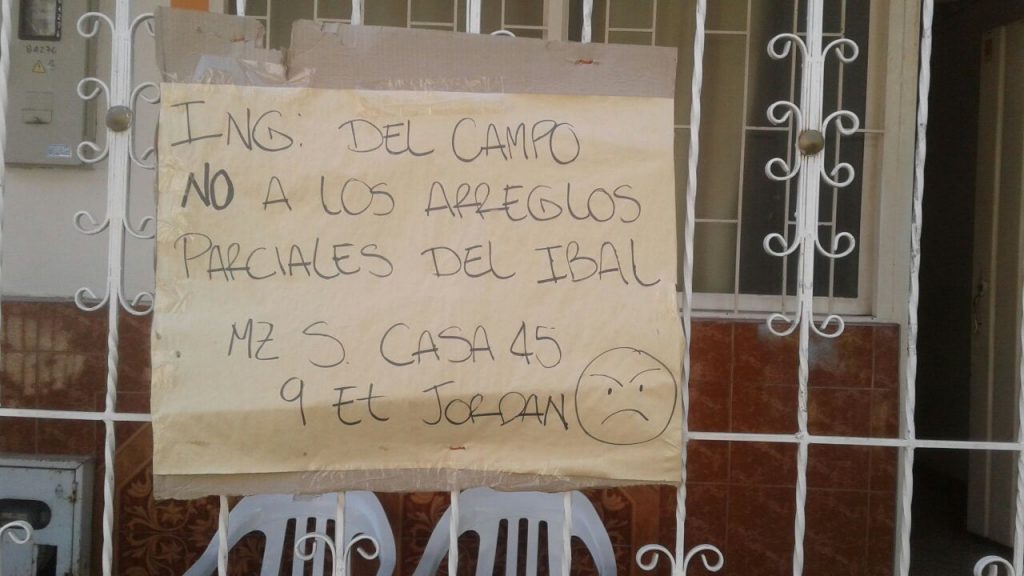 ING: DEL CAMPO
NO A LOS ARREGLOS
PARCIALES DEL IBAL
MZ S. CASA 45
9 Et JORDAN